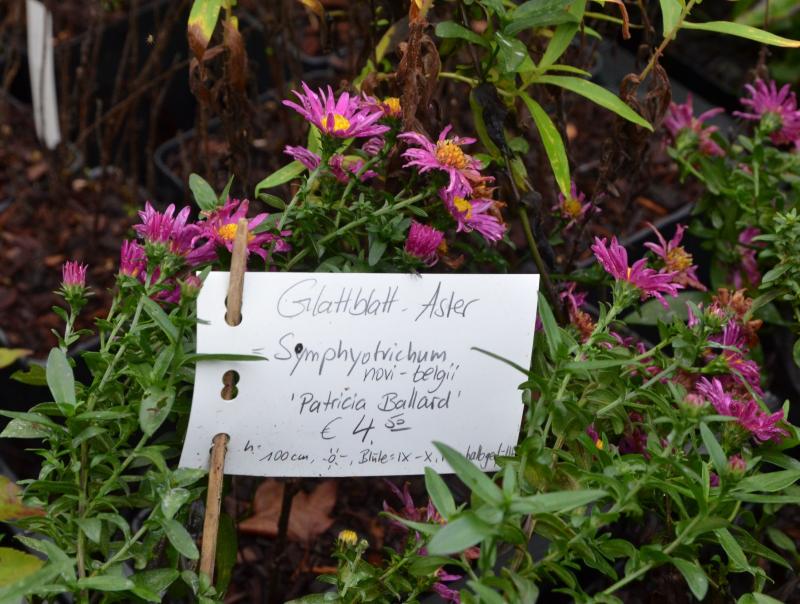 Glattblatt-Aster
= Symphyotrichum
novi-belgii
'Patricia Ballard'
€ 4,50
h: 100cm, -☼-, Blüte=IX-X,